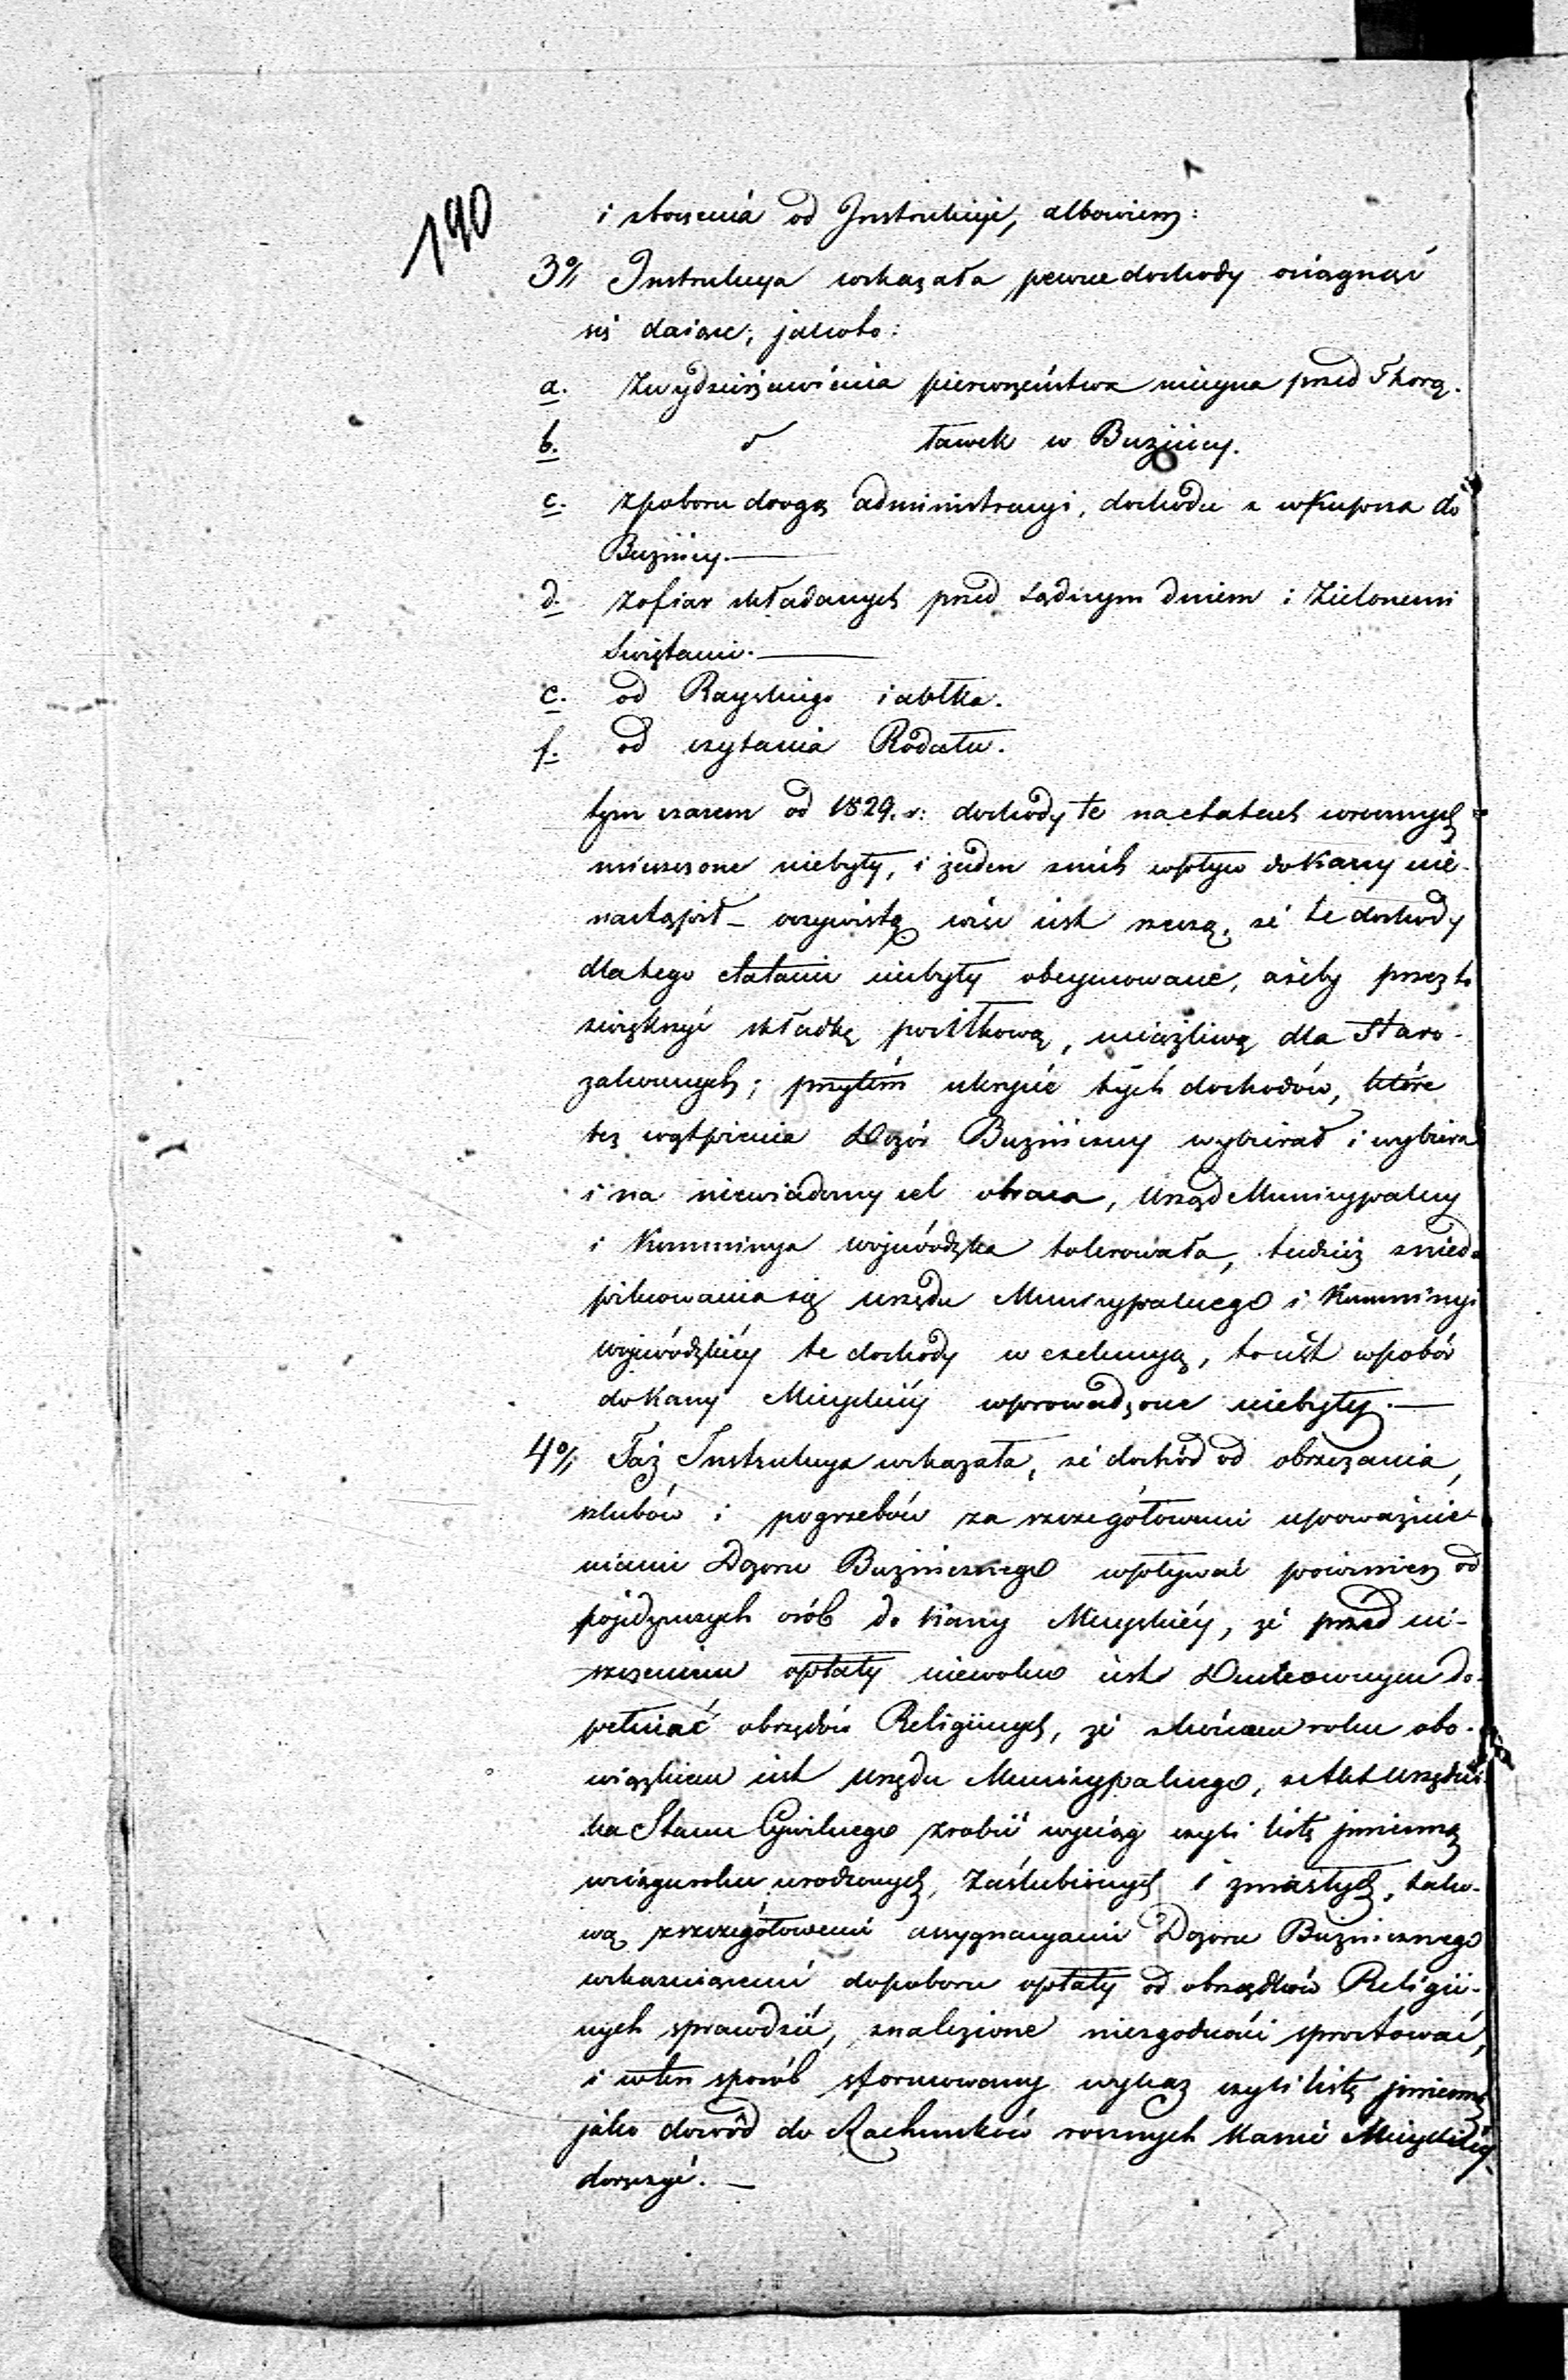 190
i zboczenia od Instrukcyi, albowiem:
3o/ Instrukcya wskazała pewne dochody osiągnąć
się daiące, jakoto:
a. Zwydzierżawienia pierwszeństwa mieysca przed Thorą.
b. d ławek w Bużnicy.
c. zpoboru drogą administracyi, dochodu z wkupna do
Bużnicy.—
d. zofiar składanych przed Sądnym dniem i Zielonemi
Świętami.—
e. od Rayskiego iabłka.
f. od czytania Rodału.
tym czasem od 1829. r: dochody te naetatach rocznych
mieszczone niebyły, i żaden znich wpływ dokassy nie-
nastąpił – oczywistą więc iest rzeczą, że te dochody
dlatego etatami niebyły obeymowane, ażeby przez to
zwiększyć składkę posiłkową, uciążliwą dla Staro-
zakonnych; przytém ukrycie tych dochodów, które
bez wątpienia Dozór Bużniczny wybierał i wybiera
i na niewiadomy cel obraca, Urząd Municypalny
i Kommissya wojewódzka tolerowała, tudzież znied
pilnowania się urzędu Municypalnego i Kommissyi
wojewódzkiéy te dochody w exekucyą, toiest wpobór
dokassy Mieyskiéy wprowadzone niebyły.—
4o/ Taż Instrukcya wskazała, że dochód od obrzezania,
szlubów i pogrzebów za szczegółowemi upoważnie-
niami Dozoru Bużnicznego wpływać powinien od
pojedynczych osób do Kassy Mieyskiéy, że przed ui-
szczeniem opłaty niewolno iest Duchownym do-
pełniać obrzędów Religiinych, że zkońcem roku obo-
wiązkiem iest Urzędu Municypalnego, zAkt Urzędni-
ka Stanu Cywilnego zrobić wyciąg czyli listę jmienną
wciągu roku urodzonych, Zaślubionych i zmarłych, tako-
wą zszczegółowemi assygnacyami Dozoru Bużnicznego
wskazuiącemi dopoboru opłaty od obrządków Religii-
nych sprawdzić, znalezione niezgodności sprostować,
i wten sposób sformowany wykaz czyli listę jmienną
jako dowód do Rachunków rocznych Kassie Mieyskiéy
doręczyć.—